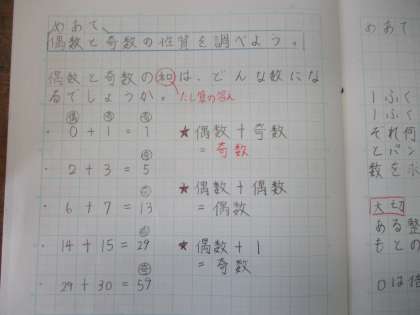 めあて
偶数と奇数の性質を調べよう。
偶数と奇数の和は、どんな数にな
るでしょうか。 たし算の答え
偶 奇 奇
・ 0 + 1 = 1
・ 2 + 3 = 5
・ 6 + 7 = 13
・ 14 + 15 = 29
・ 29 + 30 = 59
★偶数+奇数
=奇数
★偶数+偶数
=偶数
★偶数+1
=奇数
めあて
1ふく
1ふく
それ何
とパン
数を求
大切
ある整
もとの
0は倍